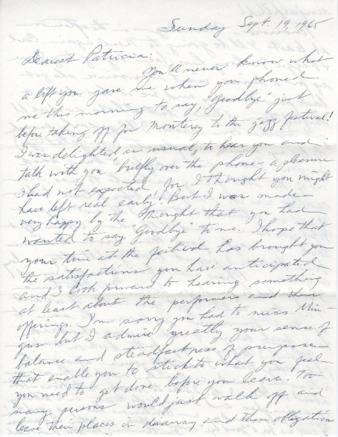 Sunday Sept. 19, 1965
Dearest Patricia:
You'll never know what
a lift you gave me when you phoned
me this morning to say, "goodbye" just
before taking off for Monterey to the jazz festival!
I was delighted as usual, to hear you and
talk with you briefly over the phone - a pleasure
I had not expected, for I thought you might
have left real early! But I was made
very happy by the thought that you had
wanted to say "Goodbye" to me. I hope that
your time at the festival has brought you
the satisfactions you have anticipated
and I look forward to hearing something
at least about the performers and their
offerings. I'm sorry you had to miss
but I admire greatly your sense of
balance and steadfastness of purpose
that enable you to stick to what you feel
you need to get done, before you leave. Too
many persons would just walk off and
leave their places in disarray and their obligations